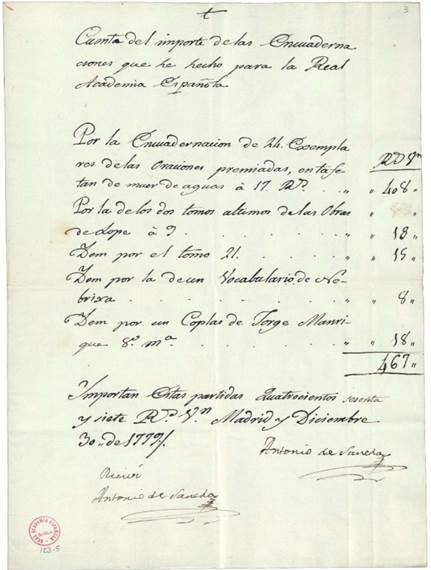 3
Cuenta del importe de las Encuaderna
ciones que he hecho para la Real
Academia Española
Rs Vn
Por la Encuadernacion de 24. Exempla
res de las Oraciones premiadas, en tafe
tan de muer de aguas à 17. Rs. . . " " 408 "
Por la de los dos tomos ultimos de las Obras " "
de Lope à 9 . . . . . . " " 18 "
Idem por el tomo 21. . . . . " " 15 "
Idem por la de un Vocabulario de Ne
brixa . . . . . . . " " 8 "
Idem por un Coplas de Jorge Manri
que 8º mª . . . . . " " 18 "
467 "
Importan Estas partidas Quatrocientos sesenta
y siete Rs. Vn Madrid y Diciembre
30 de 1779.
Antonio de Sancha
Recivi
Antonio de Sancha
REAL ACADEMIA ESPAÑOLA
183-5